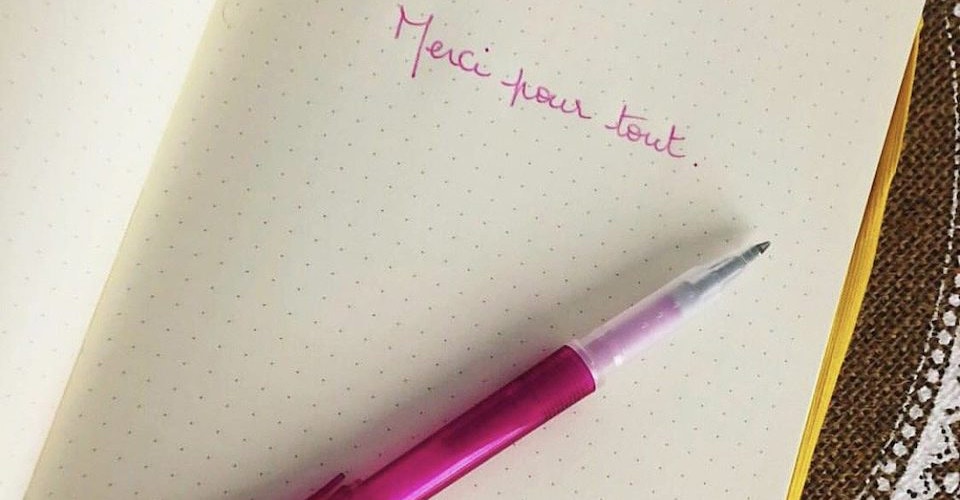 Merci pour tout.